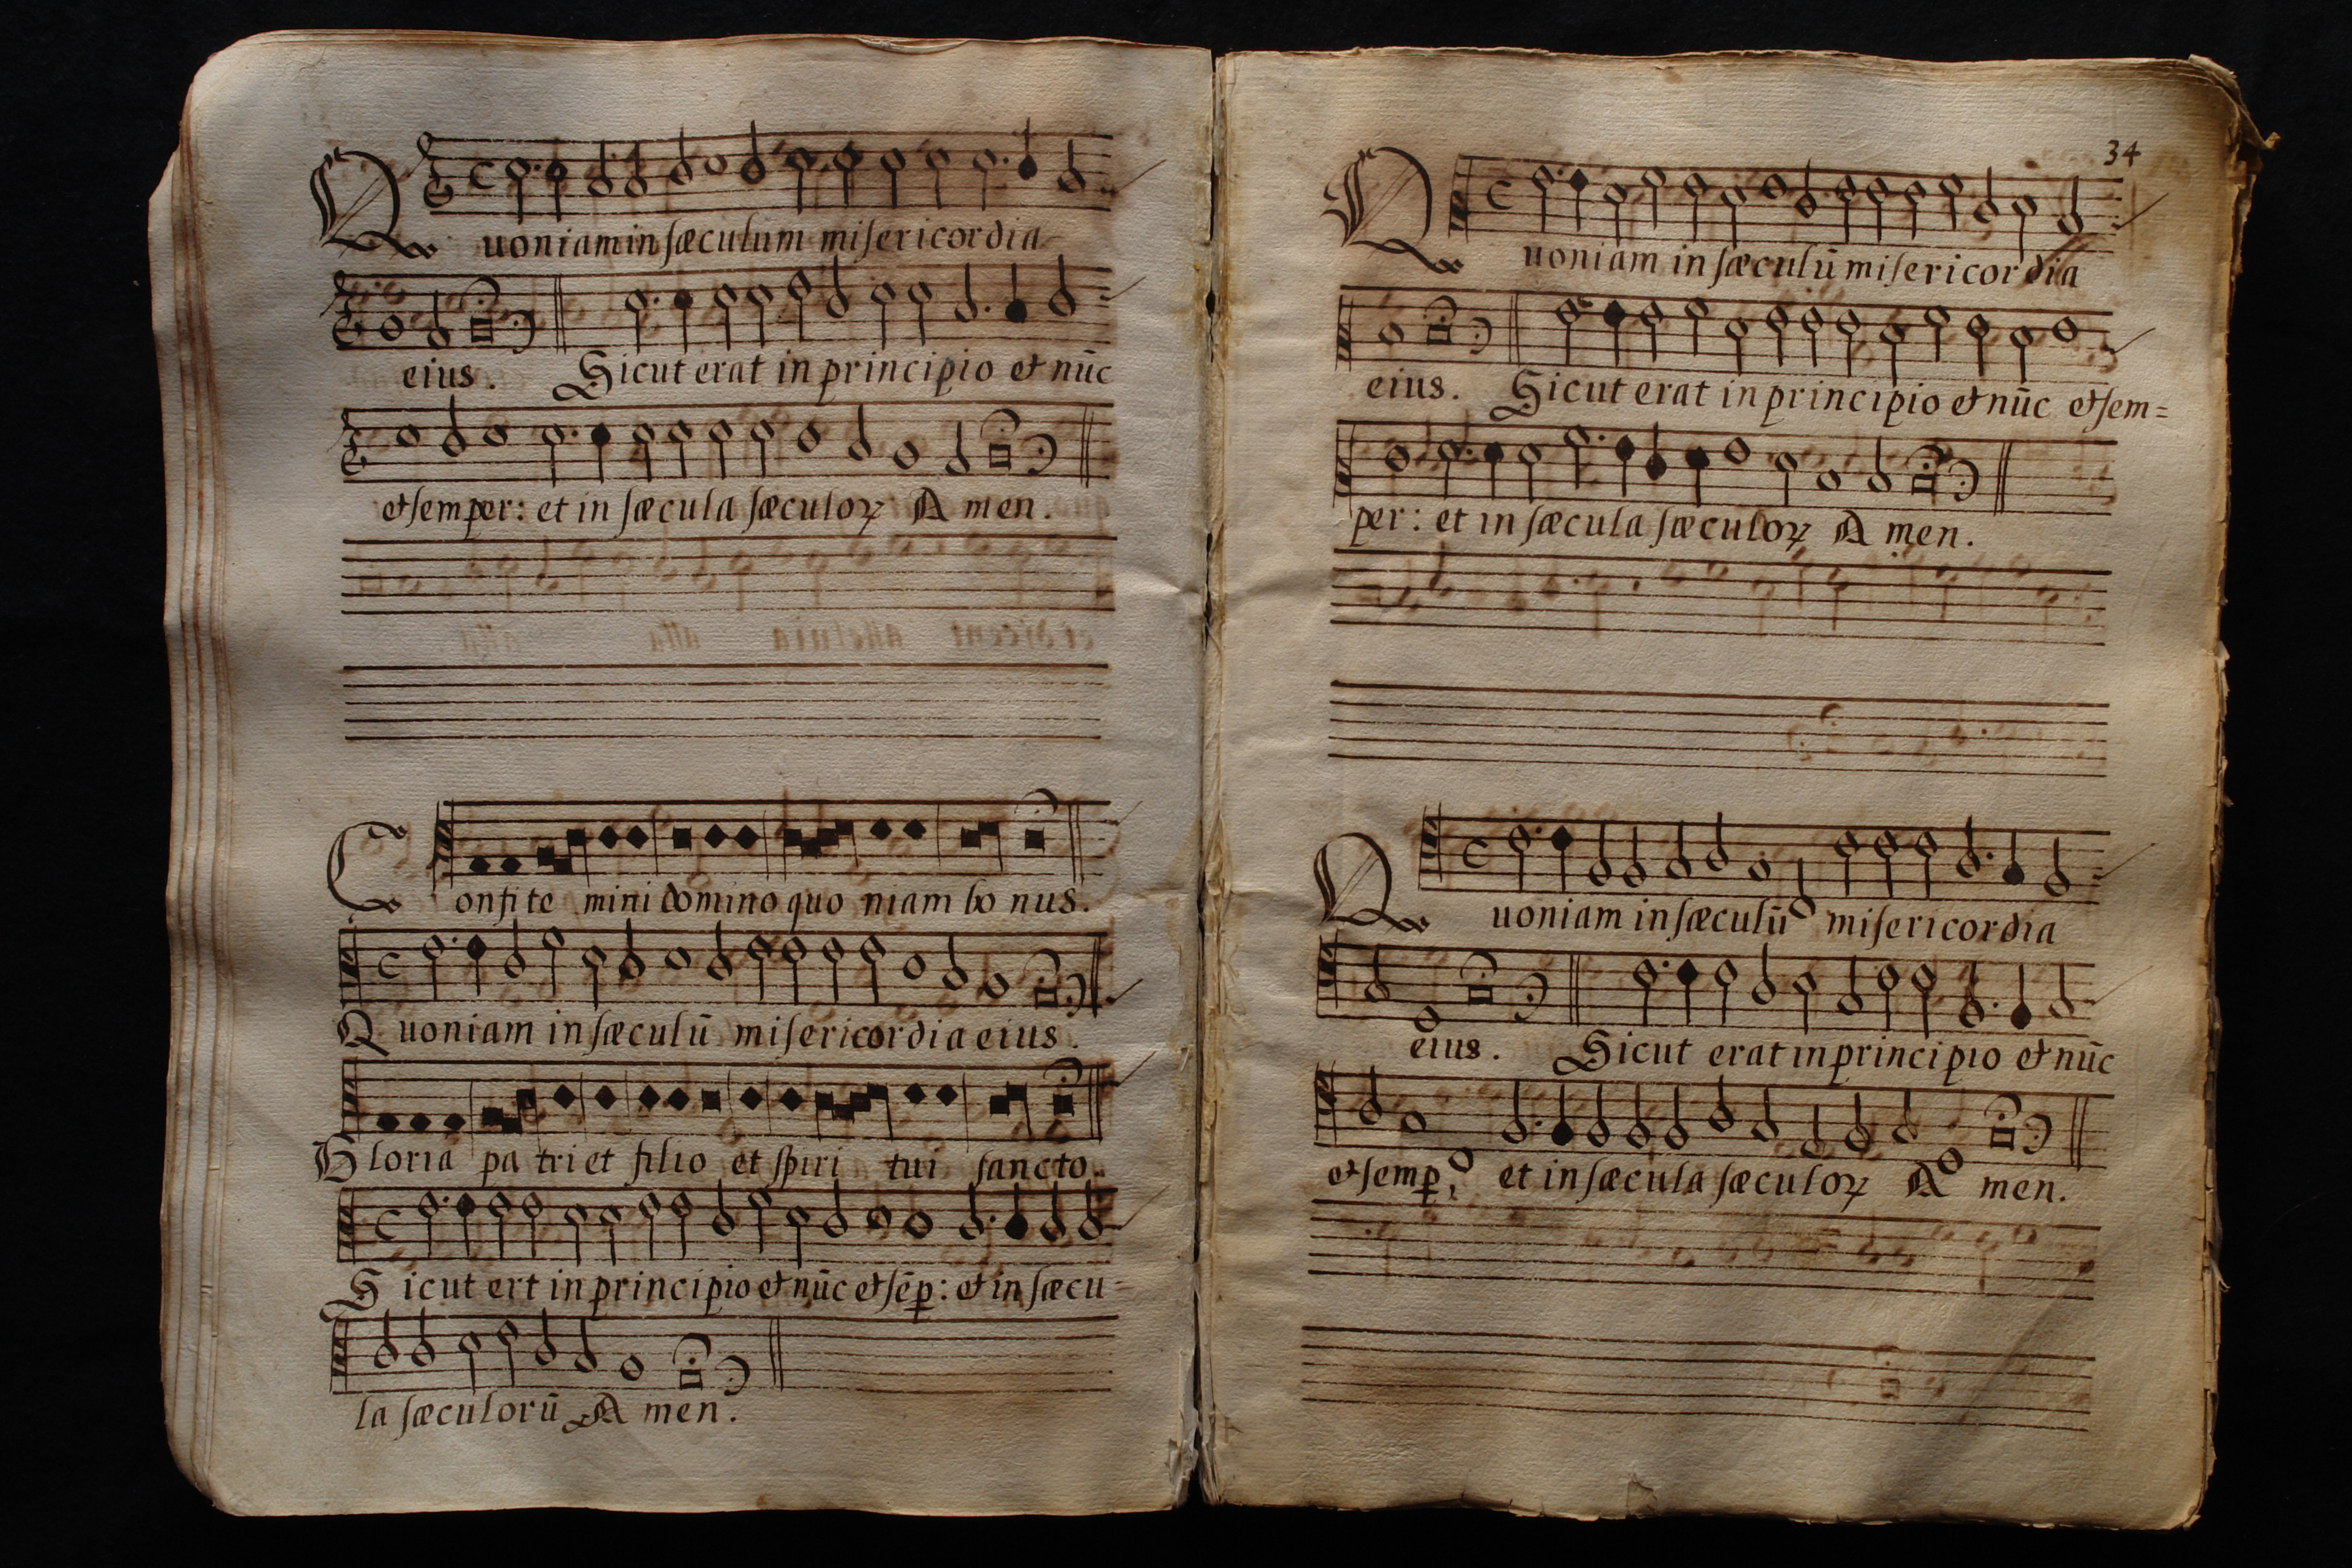 Quoniam in sæculum misericordia
eius. Sicut erat in principio et nūc
et semper: et in sæcula sæculoꝝ Amen.
Confite mini domino quoniam bonus.
Quoniam in sæculū misericordia eius.
Gloria patri et filio et spiritui sancto.
Sicut ert in principio et nūc et sēꝑ: et in sæcu-
la sæculorū Amen.
34
Quoniam in sæculū misericordia
eius. Sicut erat in principio et nūc et sem=
per: et in sæcula sæculoꝝ Amen.
Quoniam in sæculū misericordia
eius. Sicut erat in principio et nūc
et semꝑ, et in sæcula sæculoꝝ Amen.